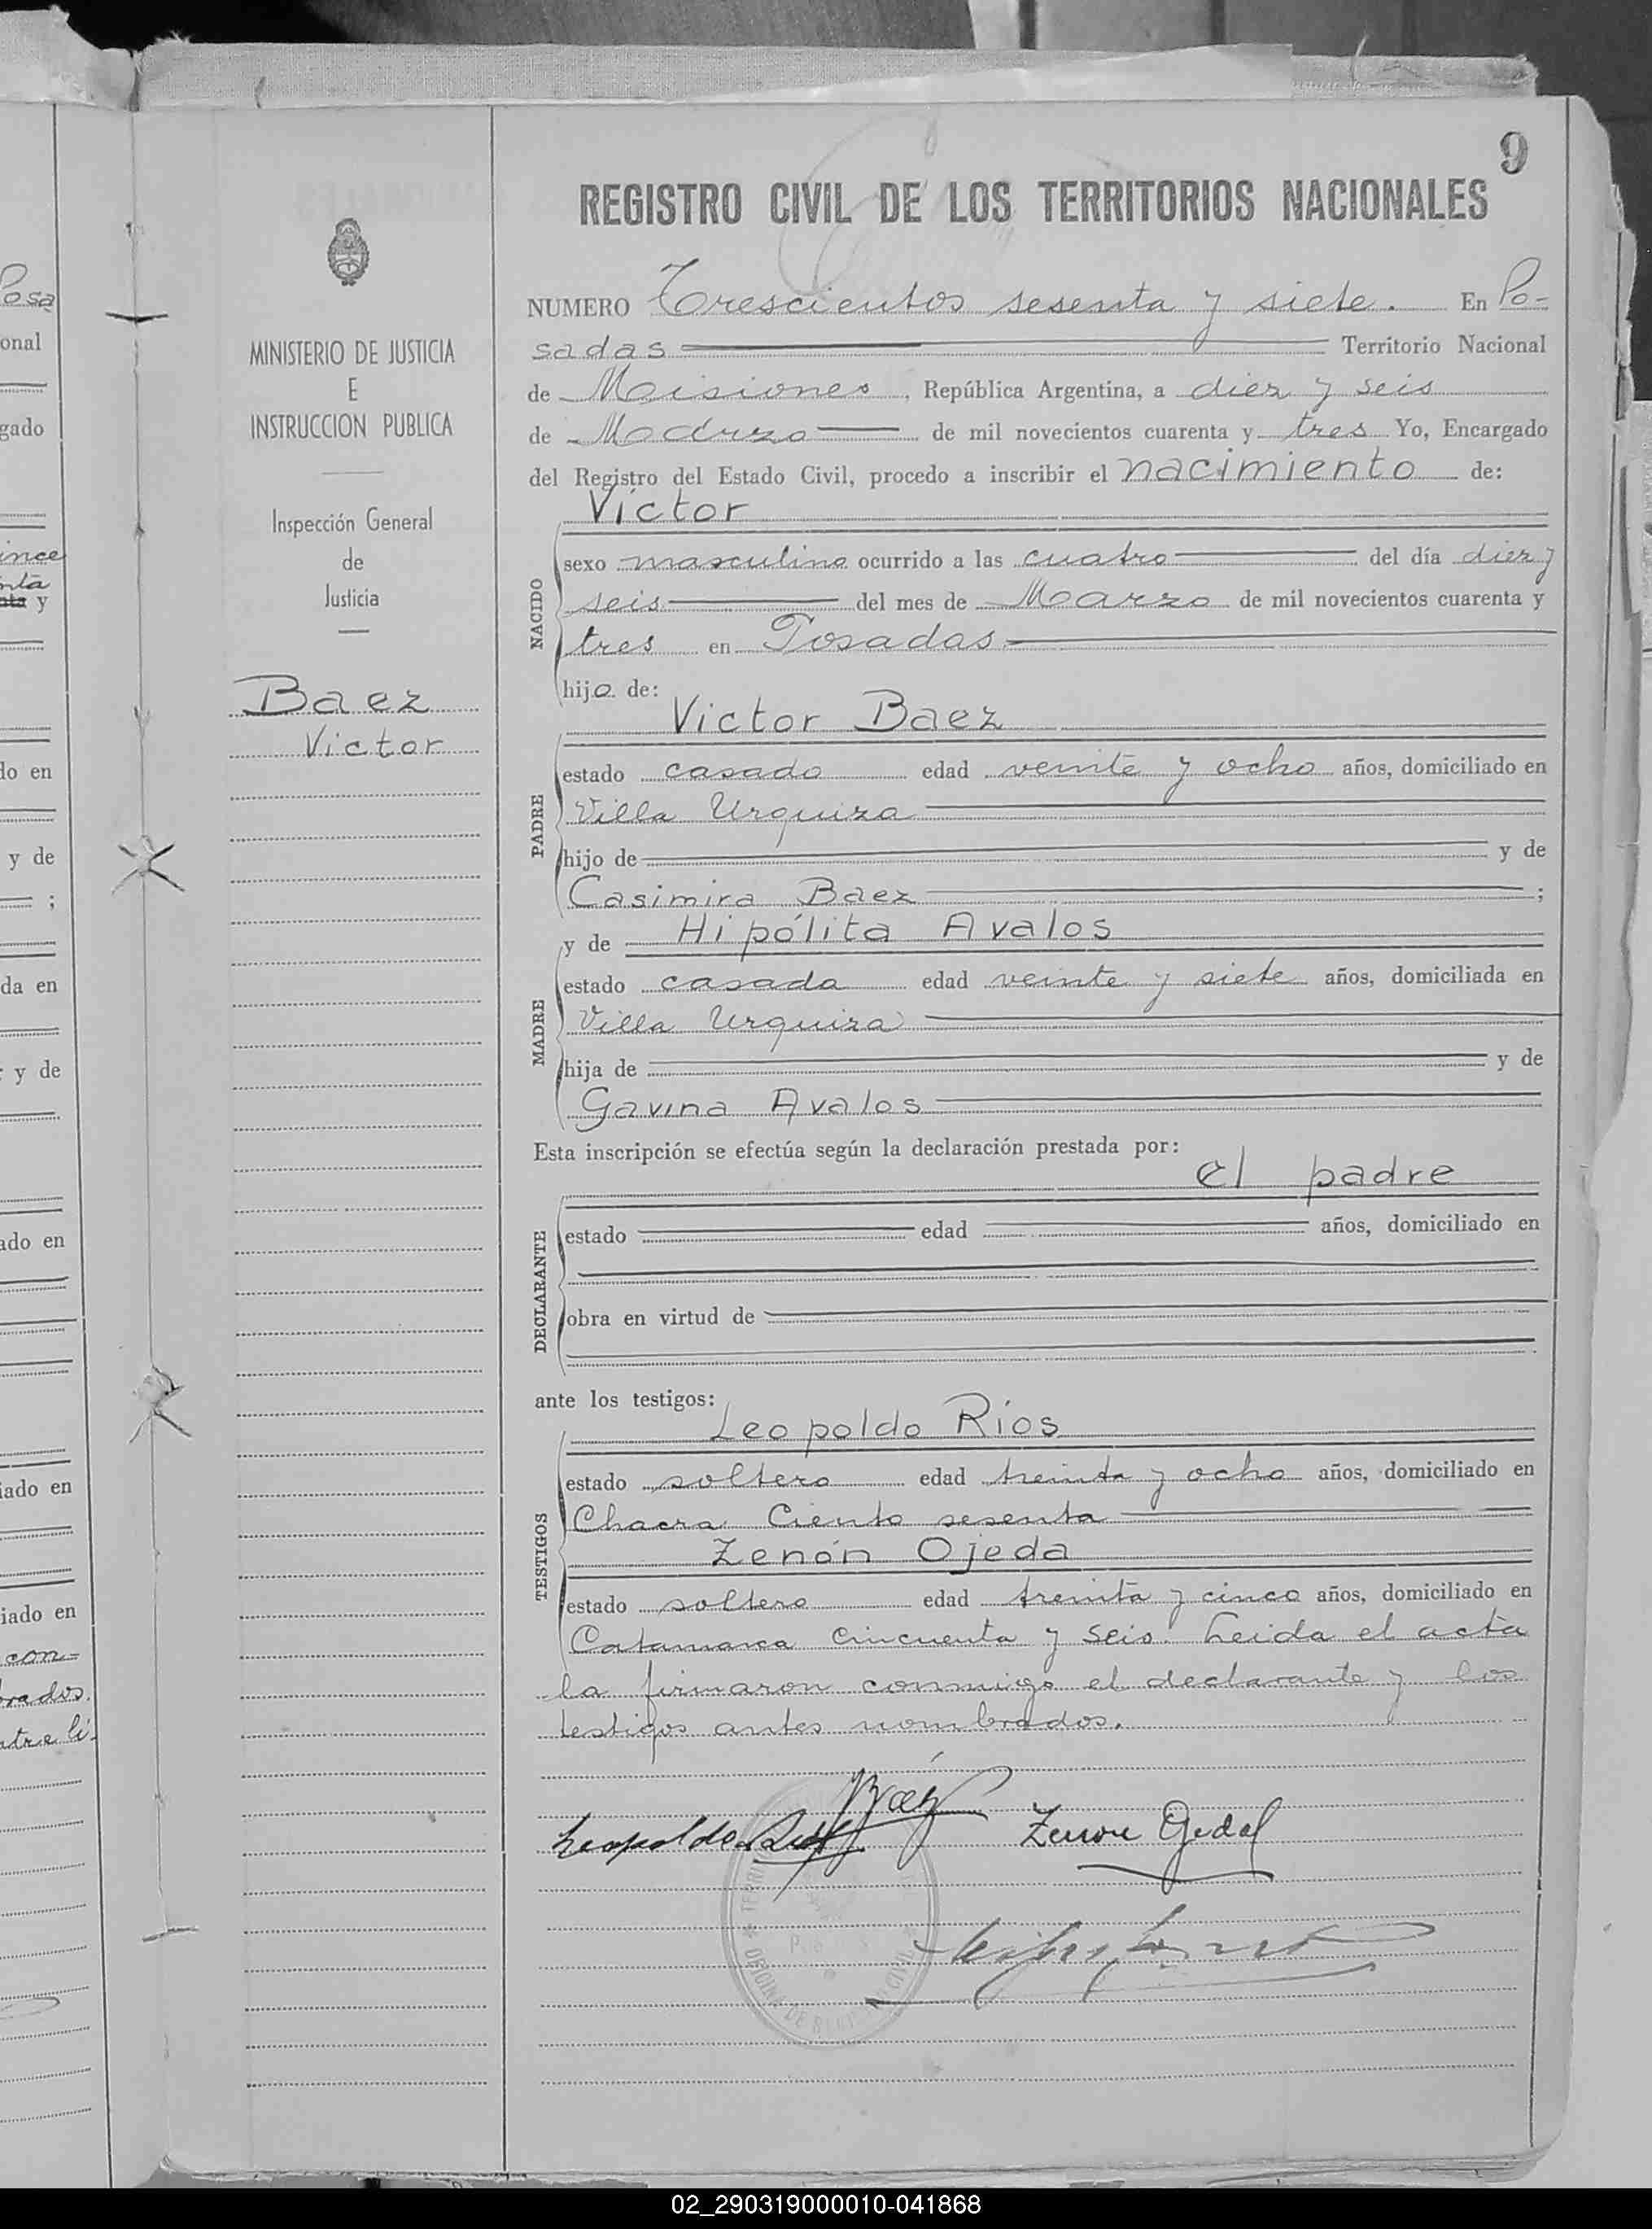 9
REGISTRO CIVIL DE LOS TERRITORIOS NACIONALES
MINISTERIO DE JUSTICIA
E
INSTRUCCION PUBLICA
Inspección General
de
Justicia
Baez
Victor
NUMERO Trescientos sesenta y siete. En Po-
sadas Territorio Nacional
de Misiones, República Argentina, a diez y seis
de Marzo de mil novecientos cuarenta y tres Yo, Encargado
del Registro del Estado Civil, procedo a inscribir el nacimiento de:
NACIDO
Victor
sexo masculino ocurrido a las cuatro del día diez y
seis del mes de Marzo de mil novecientos cuarenta y
tres en Posadas
hijo de:
PADRE
Victor Baez
estado casado edad veinte y ocho años, domiciliado en
Villa Urquiza
hijo de y de
Casimira Baez ;
MADRE
y de Hipólita Avalos
estado casada edad veinte y siete años, domiciliada en
Villa Urquiza
hija de y de
Gavina Avalos
Esta inscripción se efectúa según la declaración prestada por:
el padre
DECLARANTE
estado edad años, domiciliado en
obra en virtud de
ante los testigos:
TESTIGOS
Leopoldo Ríos
estado soltero edad treinta y ocho años, domiciliado en
Chacra Ciento sesenta
Zenón Ojeda
estado soltero edad treinta y cinco años, domiciliado en
Catamarca Cincuenta y seis. Leida el acta
la firmaron conmigo el declarante y los
testigos antes nombrados.
Baez
Leopoldo
Zenon Ojeda
OFICINA DE CIVIL
02_290319000010-041868